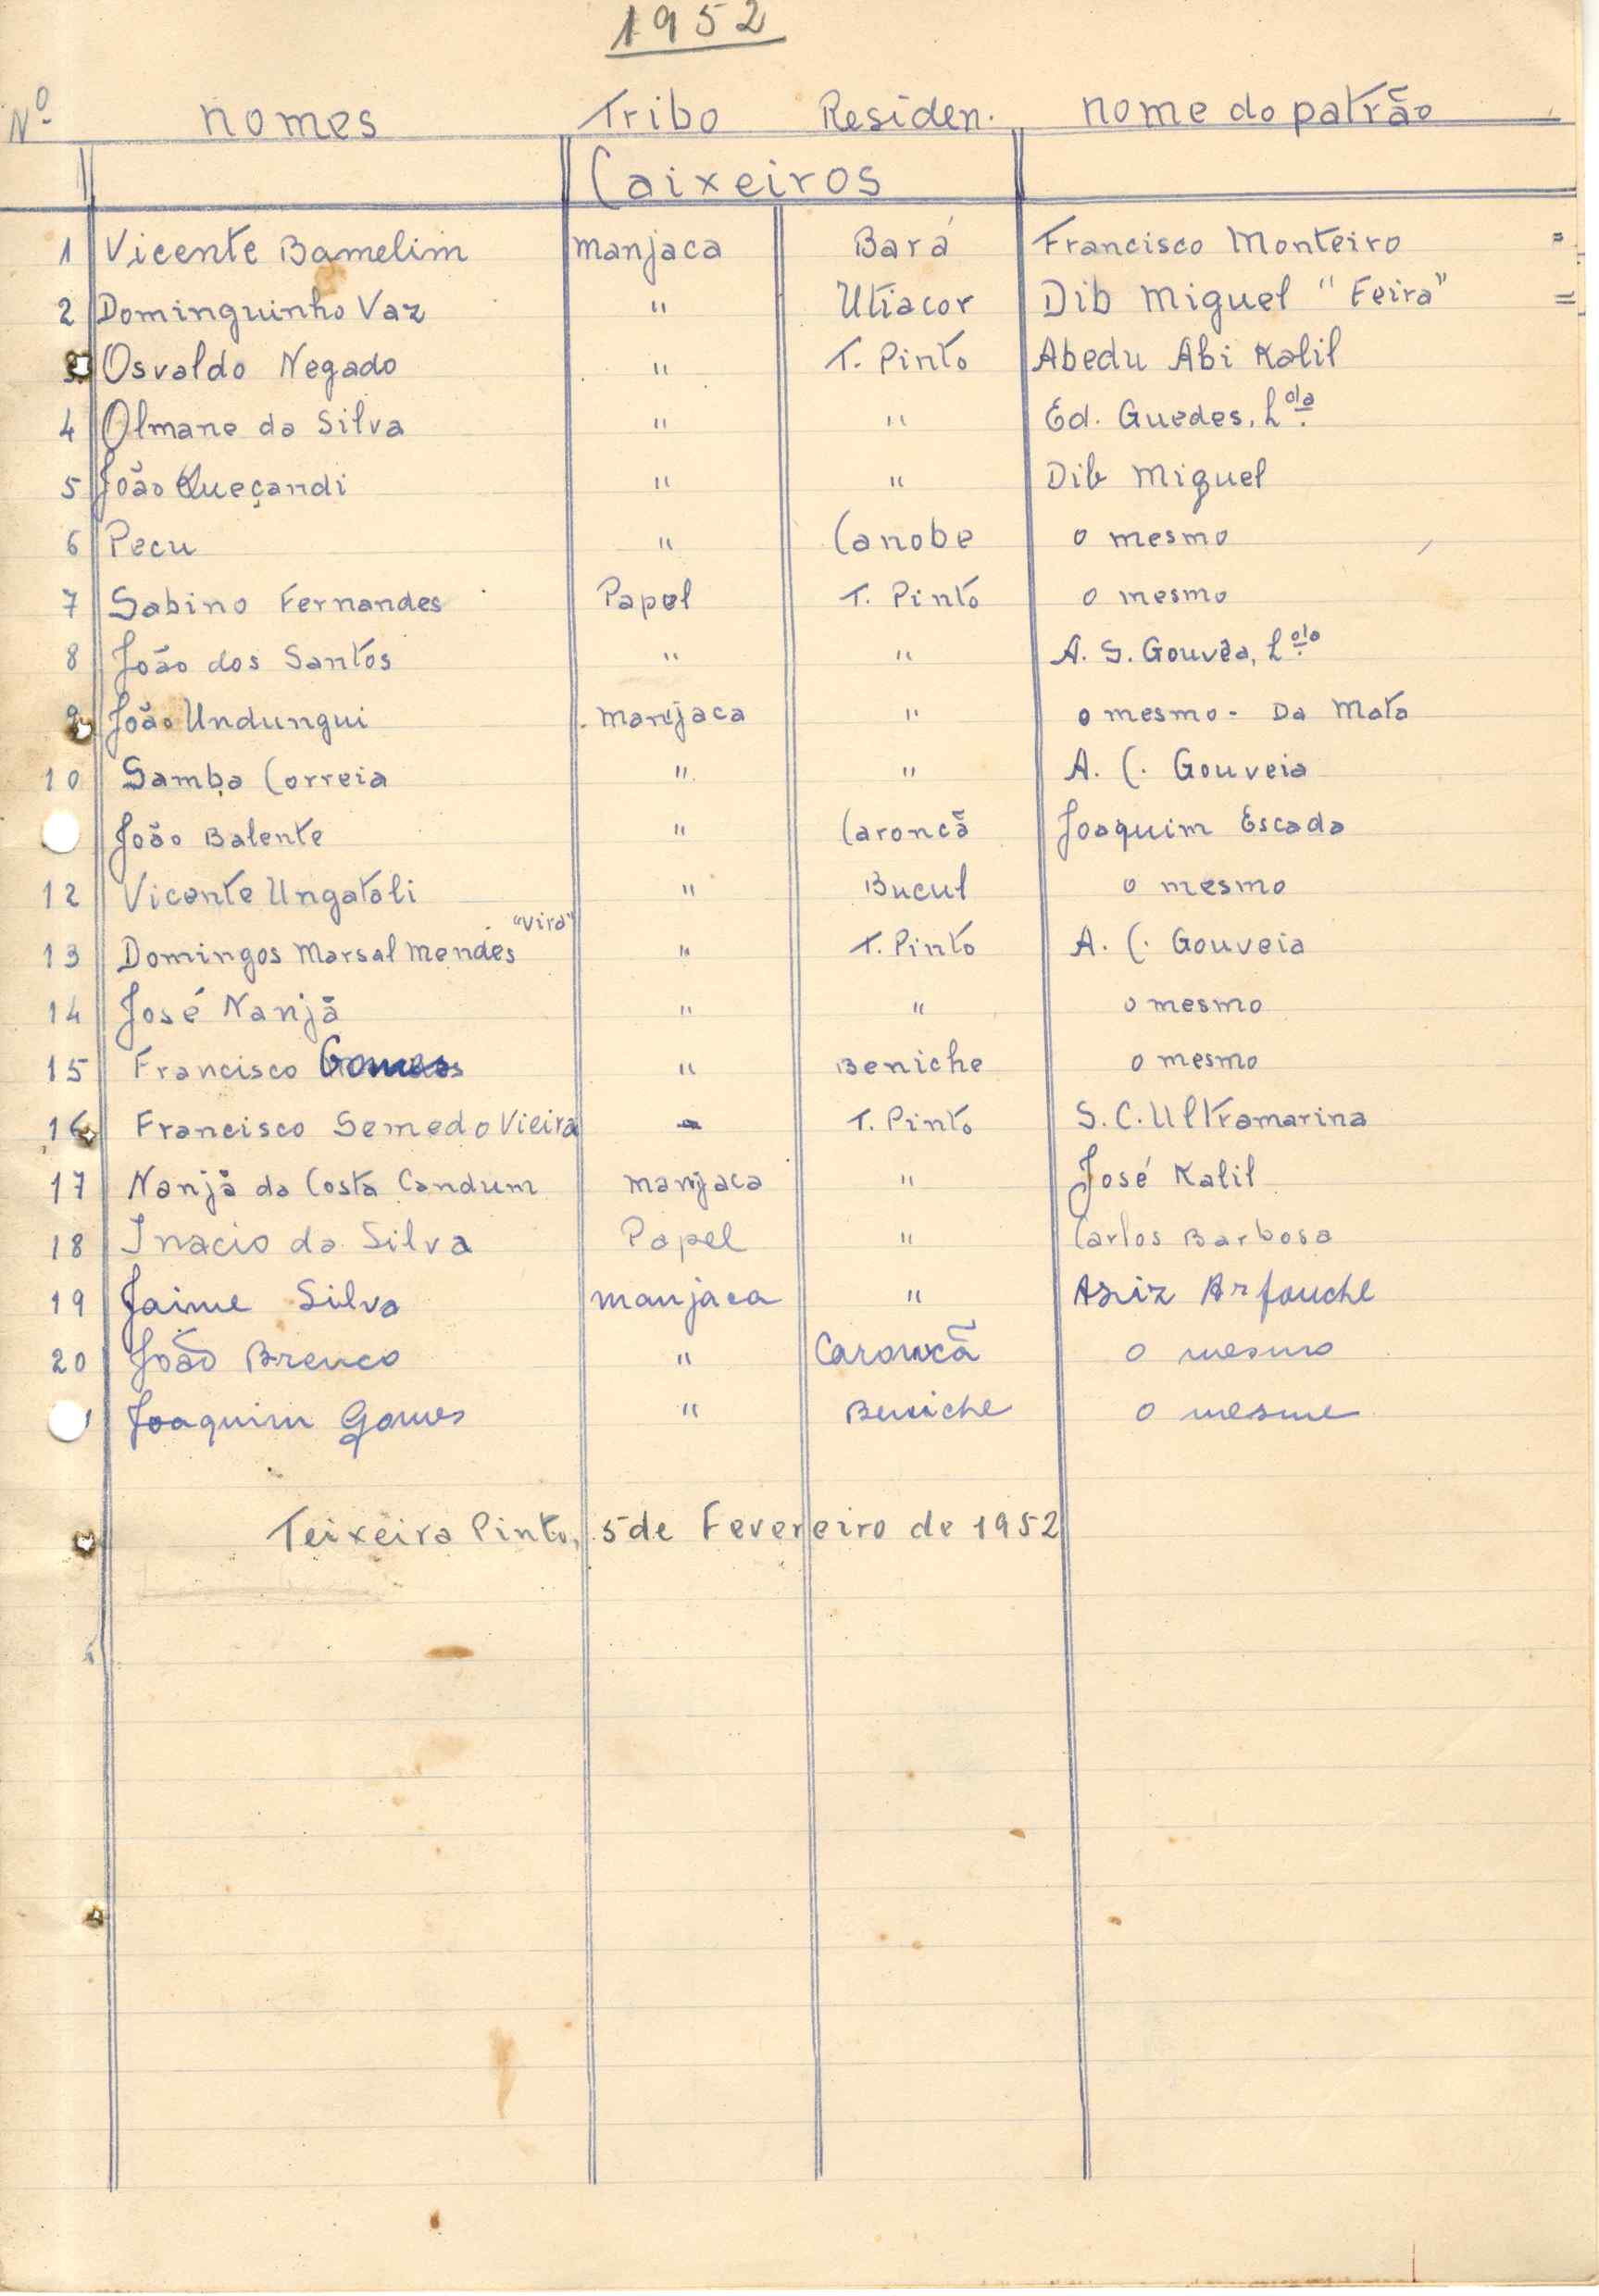 1952
Nº nomes Tribo Residen. nome do patrão
Caixeiros
1 Vicente Bamelim manjaca Bará Francisco Monteiro =
2 Dominguinho Vaz " Utiacor Dib Miguel "Feira" =
3 Osvaldo Negado " T. Pinto Abedu Abi Kalil
4 Olmane da Silva " " Ed. Guedes, Lda.
5 João Queçandi " " Dib Miguel
6 Pecu " Canobe o mesmo
7 Sabino Fernandes Papel T. Pinto o mesmo
8 João dos Santos " " A. S. Gouvêa, Lda.
9 João Undungui manjaca " o mesmo - Da Mata
10 Samba Correia " " A. C. Gouveia
João Balente " Caroncã Joaquim Escada
12 Vicente Ungatali " Bucul o mesmo
"Vira"
13 Domingos Marsal Mendes " T. Pinto A. C. Gouveia
14 José Nanjã " " o mesmo
15 Francisco Gomes " Beniche o mesmo
16 Francisco Semedo Vieira - T. Pinto S. C. Ultramarina
17 Nanjã da Costa Candum manjaca " José Kalil
18 Inacio da Silva Papel " Carlos Barbosa
19 Jaime Silva manjaca " Aziz Arfouche
20 João Brenco " Caroncã o mesmo
Joaquim Gomes " Beniche o mesmo
Teixeira Pinto, 5 de Fevereiro de 1952